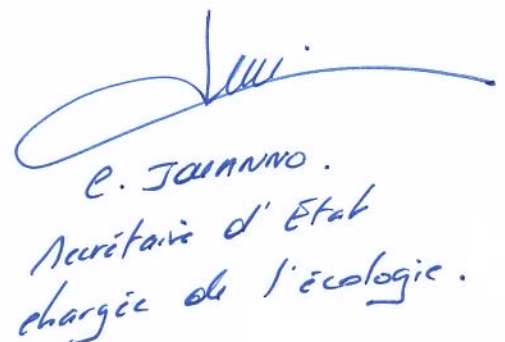 C. JOUANNO.
Secrétaire d'État
chargée de l'écologie.